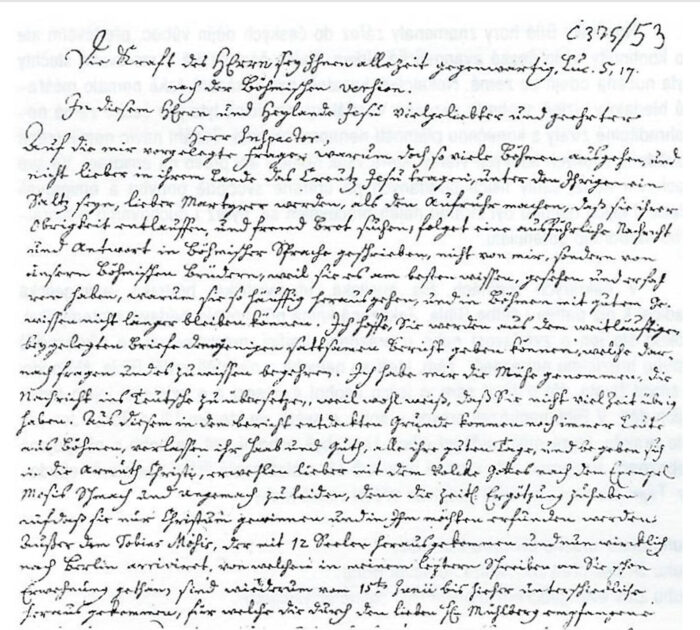 C375/53
Die Krafft des HErrn sey Ihnen allezeit gegenwärtig. Luc. 5, 17.
nach der Böhmischen Version.
In diesem HErrn und Heylande Jesu vielgeliebter und geehrter
Herr Inspector,
Auch die mir vorgelegte Frage: Warum doch so viele Böhmen ausgehen, und
nicht lieber in ihrem Lande das Creutz Jesu tragen, unter den Ihrigen ein
Saltz seyn, lieber Martyrer werden, als den Aufruhr machen, daß sie ihrer
Obrigkeit entlauffen, und fremd Brot suchen; folget eine ausführliche Nachricht
und Antwort in Böhmischer Sprache geschrieben, nicht von mir, sondern von
unseren Böhmischen Brüdern, weil sie es am besten wissen, gesehen und erfah
ren haben, warum sie so häuffig herausgehen, und in Böhmen mit gutem Ge-
wissen nicht länger bleiben können. Ich hoffe, Sie werden aus dem weitläuftigen
beygelegten Briefe denenjenigen sattsamen bericht geben können, welche dar-
nach fragen und es zu wissen begehren. Ich habe mir die Mühe
Nachricht ins Teutsche zu übersetzen, weil wohl weiß, daß Sie nicht viel Zeit übrig
haben. Aus diesem in dem bericht entdeckten Grunde kommen noch immer Leute
aus Böhmen, verlassen ihr Haab und Guth, alle ihre guten Tage, und begeben sich
in die Armuth Christi, erwehlen lieber mit dem Volcke Gottes nach dem Exempel
Mosis Schmach und Ungemach zu leiden, denn die zeitl. Ergötzung zu haben
auf daß sie nur Christum gewinnen und in Ihm möchten erfunden werden
Außer dem Tobias Möhis, der mit 12 Seelen herausgekommen und nun wircklich
nach Berlin arriviret, von welchen in meinem letztern Schreiben an Sie schon
Erwehnung gethan, sind wiederum vom 10ten Junii bis hieher unterschiedliche
heraus gekommen, für welche die durch den lieben H. Mühlberg empfangene